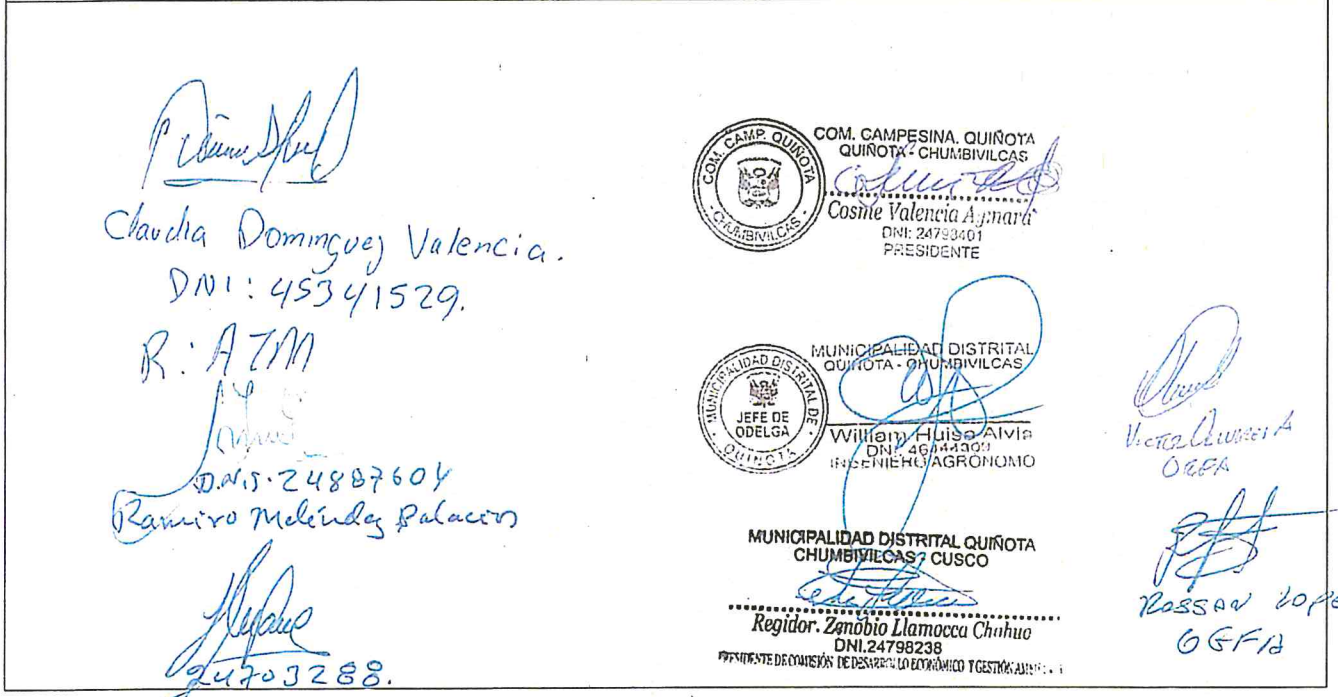 Claudia Dominguez Valencia.
DNI: 45341529.
R: ATM
D.N.I. 24887604
Ramiro Meléndez Palacios
24703288.
COM. CAMP. QUIÑOTA
- CHUMBIVILCAS -
COM. CAMPESINA. QUIÑOTA
QUIÑOTA - CHUMBIVILCAS
Cosme Valencia Aymara
DNI: 24793401
PRESIDENTE
MUNICIPALIDAD DISTRITAL DE
QUIÑOTA
JEFE DE
ODELGA
MUNICIPALIDAD DISTRITAL
QUIÑOTA - CHUMBIVILCAS
William Huisa Alvis
DNI:
INGENIERO AGRÓNOMO
MUNICIPALIDAD DISTRITAL QUIÑOTA
CHUMBIVILCAS - CUSCO
Regidor. Zenobio Llamocca Chuhuo
DNI.24798238
PRESIDENTE DE COMISIÓN DE DESARROLLO ECONÓMICO Y GESTIÓN
VICTOR
OEFA
ROSSAN LOPE
OEFA